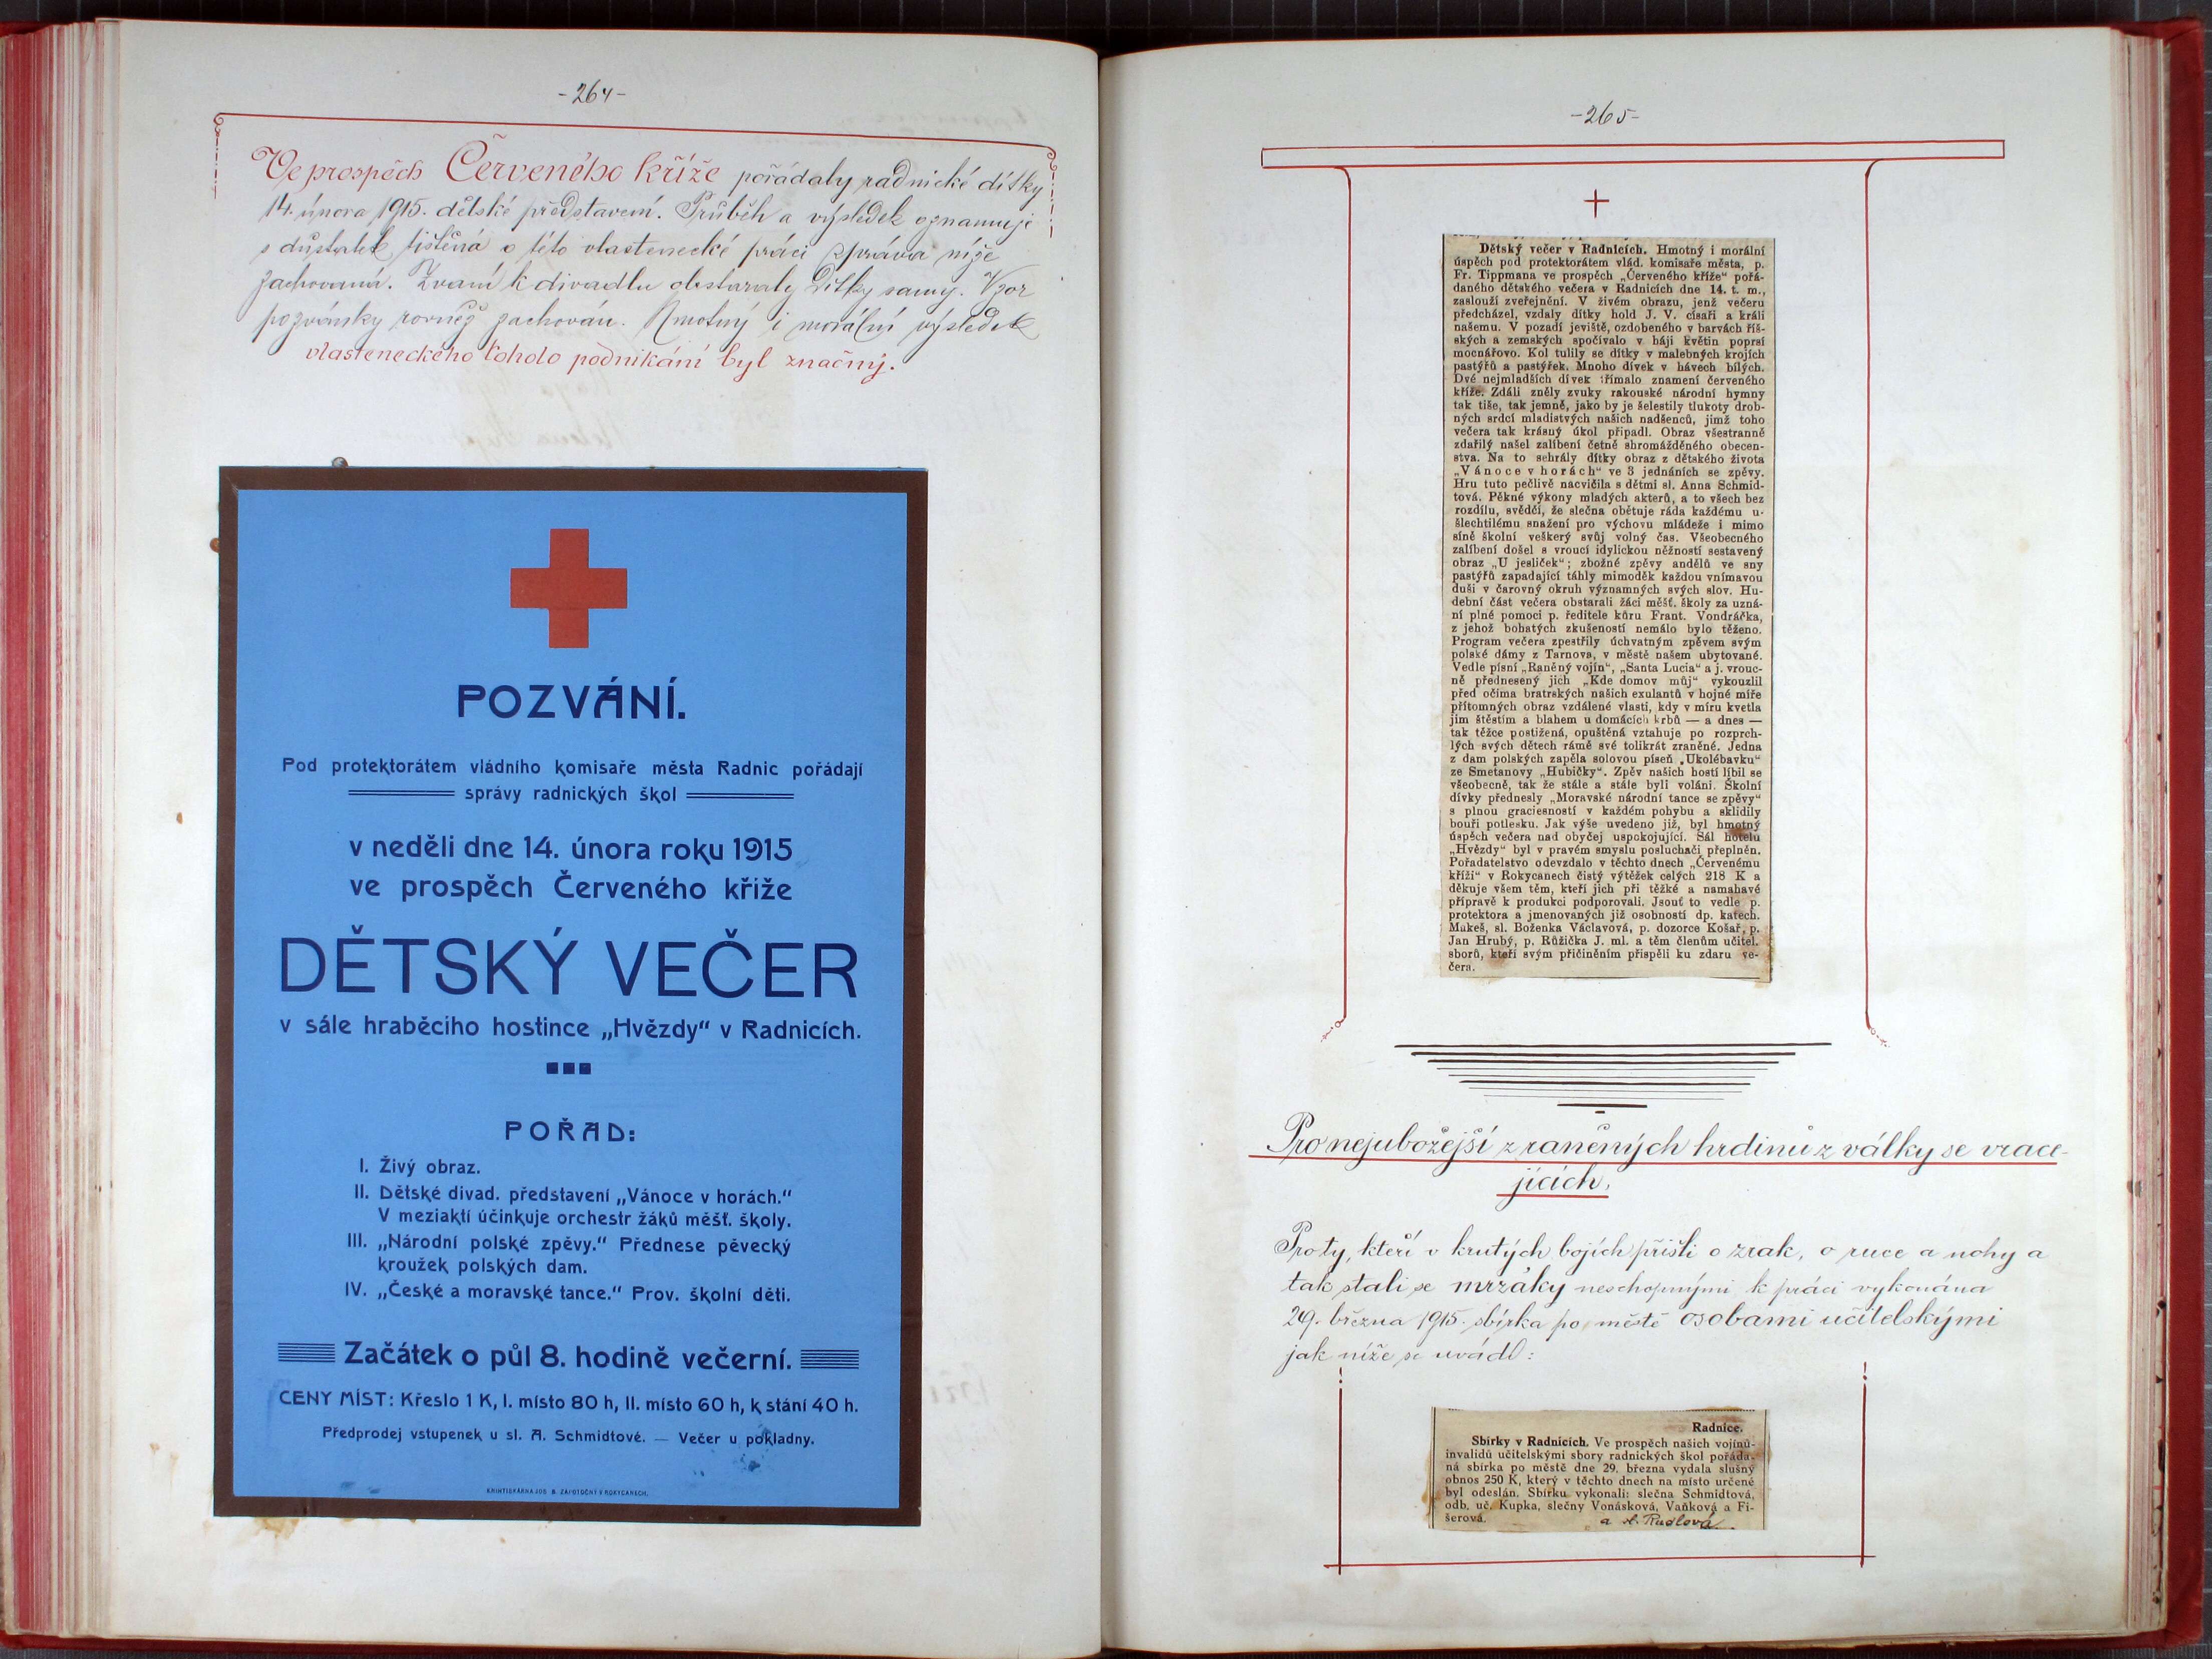 -264-
Ve prospěch Červeného kříže pořádaly radnické dítky
14. února 1915. dětské představení. Průběh a výsledek oznamuje
s důstatek tištěná o této vlastenecké práci zpráva níže
zachovaná. Zvaní k divadlu obstaraly dítky samy. Vzor
pozvánky rovněž zachován. Hmotný i morální výsledek
vlasteneckého tohoto podnikání byl značný.
POZVÁNÍ.
Pod protektorátem vládního komisaře města Radnic pořádají
správy radnických škol
v neděli dne 14. února roku 1915
ve prospěch Červeného kříže
DĚTSKÝ VEČER
v sále hraběcího hostince „Hvězdy“ v Radnicích.
POŘAD:
I. Živý obraz.
II. Dětské divad. představení „Vánoce v horách.“
V meziaktí účinkuje orchestr žáků měšť. školy.
III. „Národní polské zpěvy.“ Přednese pěvecký
kroužek polských dam.
IV. „České a moravské tance.“ Prov. školní děti.
Začátek o půl 8. hodině večerní.
CENY MÍST: Křeslo 1 K, I. místo 80 h, II. místo 60 h, k stání 40 h.
Předprodej vstupenek u sl. A. Schmidtové. — Večer u pokladny.
KNIHTISKÁRNA JOS. B. ZÁPOTOČNÝ V ROKYCANECH.
-265-
Dětský večer v Radnicích. Hmotný i morální
úspěch pod protektorátem vlád. komisaře města, p.
Fr. Tippmana ve prospěch „Červeného kříže“ pořá-
daného dětského večera v Radnicích dne 14. t. m.,
zaslouží zveřejnění. V živém obrazu, jenž večeru
předcházel, vzdaly dítky hold J. V. císaři a králi
našemu. V pozadí jeviště, ozdobeného v barvách říš-
ských a zemských spočívalo v háji květin poprsí
mocnářovo. Kol tulily se dítky v malebných krojích
pastýřů a pastýřek. Mnoho dívek v hávech bílých.
Dvé nejmladších dívek třímalo znamení červeného
kříže. Zdáli zněly zvuky rakouské národní hymny
tak tiše, tak jemně, jako by je šelestily tlukoty drob-
ných srdcí mladistvých našich nadšenců, jimž toho
večera tak krásný úkol připadl. Obraz všestranně
zdařilý našel zalíbení četně shromážděného obecen-
stva. Na to sehrály dítky obraz z dětského života
„Vánoce v horách“ ve 3 jednáních se zpěvy.
Hru tuto pečlivě nacvičila s dětmi sl. Anna Schmid-
tová. Pěkné výkony mladých akterů, a to všech bez
rozdílu, svědčí, že slečna obětuje ráda každému u-
šlechtilému snažení pro výchovu mládeže i mimo
síně školní veškerý svůj volný čas. Všeobecného
zalíbení došel s vroucí idylickou něžností sestavený
obraz „U jesliček“; zbožné zpěvy andělů ve sny
pastýřů zapadající táhly mimoděk každou vnímavou
duši v čarovný okruh významných svých slov. Hu-
dební část večera obstarali žáci měšť. školy za uzná-
ní plné pomoci p. ředitele kůru Frant. Vondráčka,
z jehož bohatých zkušeností nemálo bylo těženo.
Program večera zpestřily úchvatným zpěvem svým
polské dámy z Tarnova, v městě našem ubytované.
Vedle písní „Raněný vojín“, „Santa Lucia“ a j. vrouc-
ně přednesený jich „Kde domov můj“ vykouzlil
před očima bratrských našich exulantů v hojné míře
přítomných obraz vzdálené vlasti, kdy v míru kvetla
jim štěstím a blahem u domácích krbů — a dnes —
tak těžce postižená, opuštěná vztahuje po rozprch-
lých svých dětech rámě své tolikrát zraněné. Jedna
z dam polských zapěla solovou píseň „Ukolébavku“
ze Smetanovy „Hubičky“. Zpěv našich hostí líbil se
všeobecně, tak že stále a stále byli voláni. Školní
dívky přednesly „Moravské národní tance se zpěvy“
s plnou graciesností v každém pohybu a sklidily
bouři potlesku. Jak výše uvedeno již, byl hmotný
úspěch večera nad obyčej uspokojující. Sál hotelu
„Hvězdy“ byl v pravém smyslu posluchači přeplněn.
Pořadatelstvo odevzdalo v těchto dnech „Červenému
kříži“ v Rokycanech čistý výtěžek celých 218 K a
děkuje všem těm, kteří jich při těžké a namahavé
přípravě k produkci podporovali. Jsouť to vedle p.
protektora a jmenovaných již osobností dp. katech.
Mukeš, sl. Boženka Václavová, p. dozorce Košař, p.
Jan Hrubý, p. Růžička J. ml. a těm členům učitel.
sborů, kteří svým přičiněním přispěli ku zdaru ve-
čera.
Pro nejubožejší z raněných hrdinů z války se vrace-
jících.
Pro ty, kteří v krutých bojích přišli o zrak, o ruce a nohy a
tak stali se mrzáky neschopnými k práci vykonána
29. března 1915. sbírka po městě osobami učitelskými
jak níže se uvádí:
Radnice.
Sbírky v Radnicích. Ve prospěch našich vojínů-
invalidů učitelskými sbory radnických škol pořáda-
ná sbírka po městě dne 29. března vydala slušný
obnos 250 K, který v těchto dnech na místo určené
byl odeslán. Sbírku vykonali: slečna Schmidtová,
odb. uč. Kupka, slečny Vonásková, Vaňková a Fi-
šerová. a sl. Rudlová